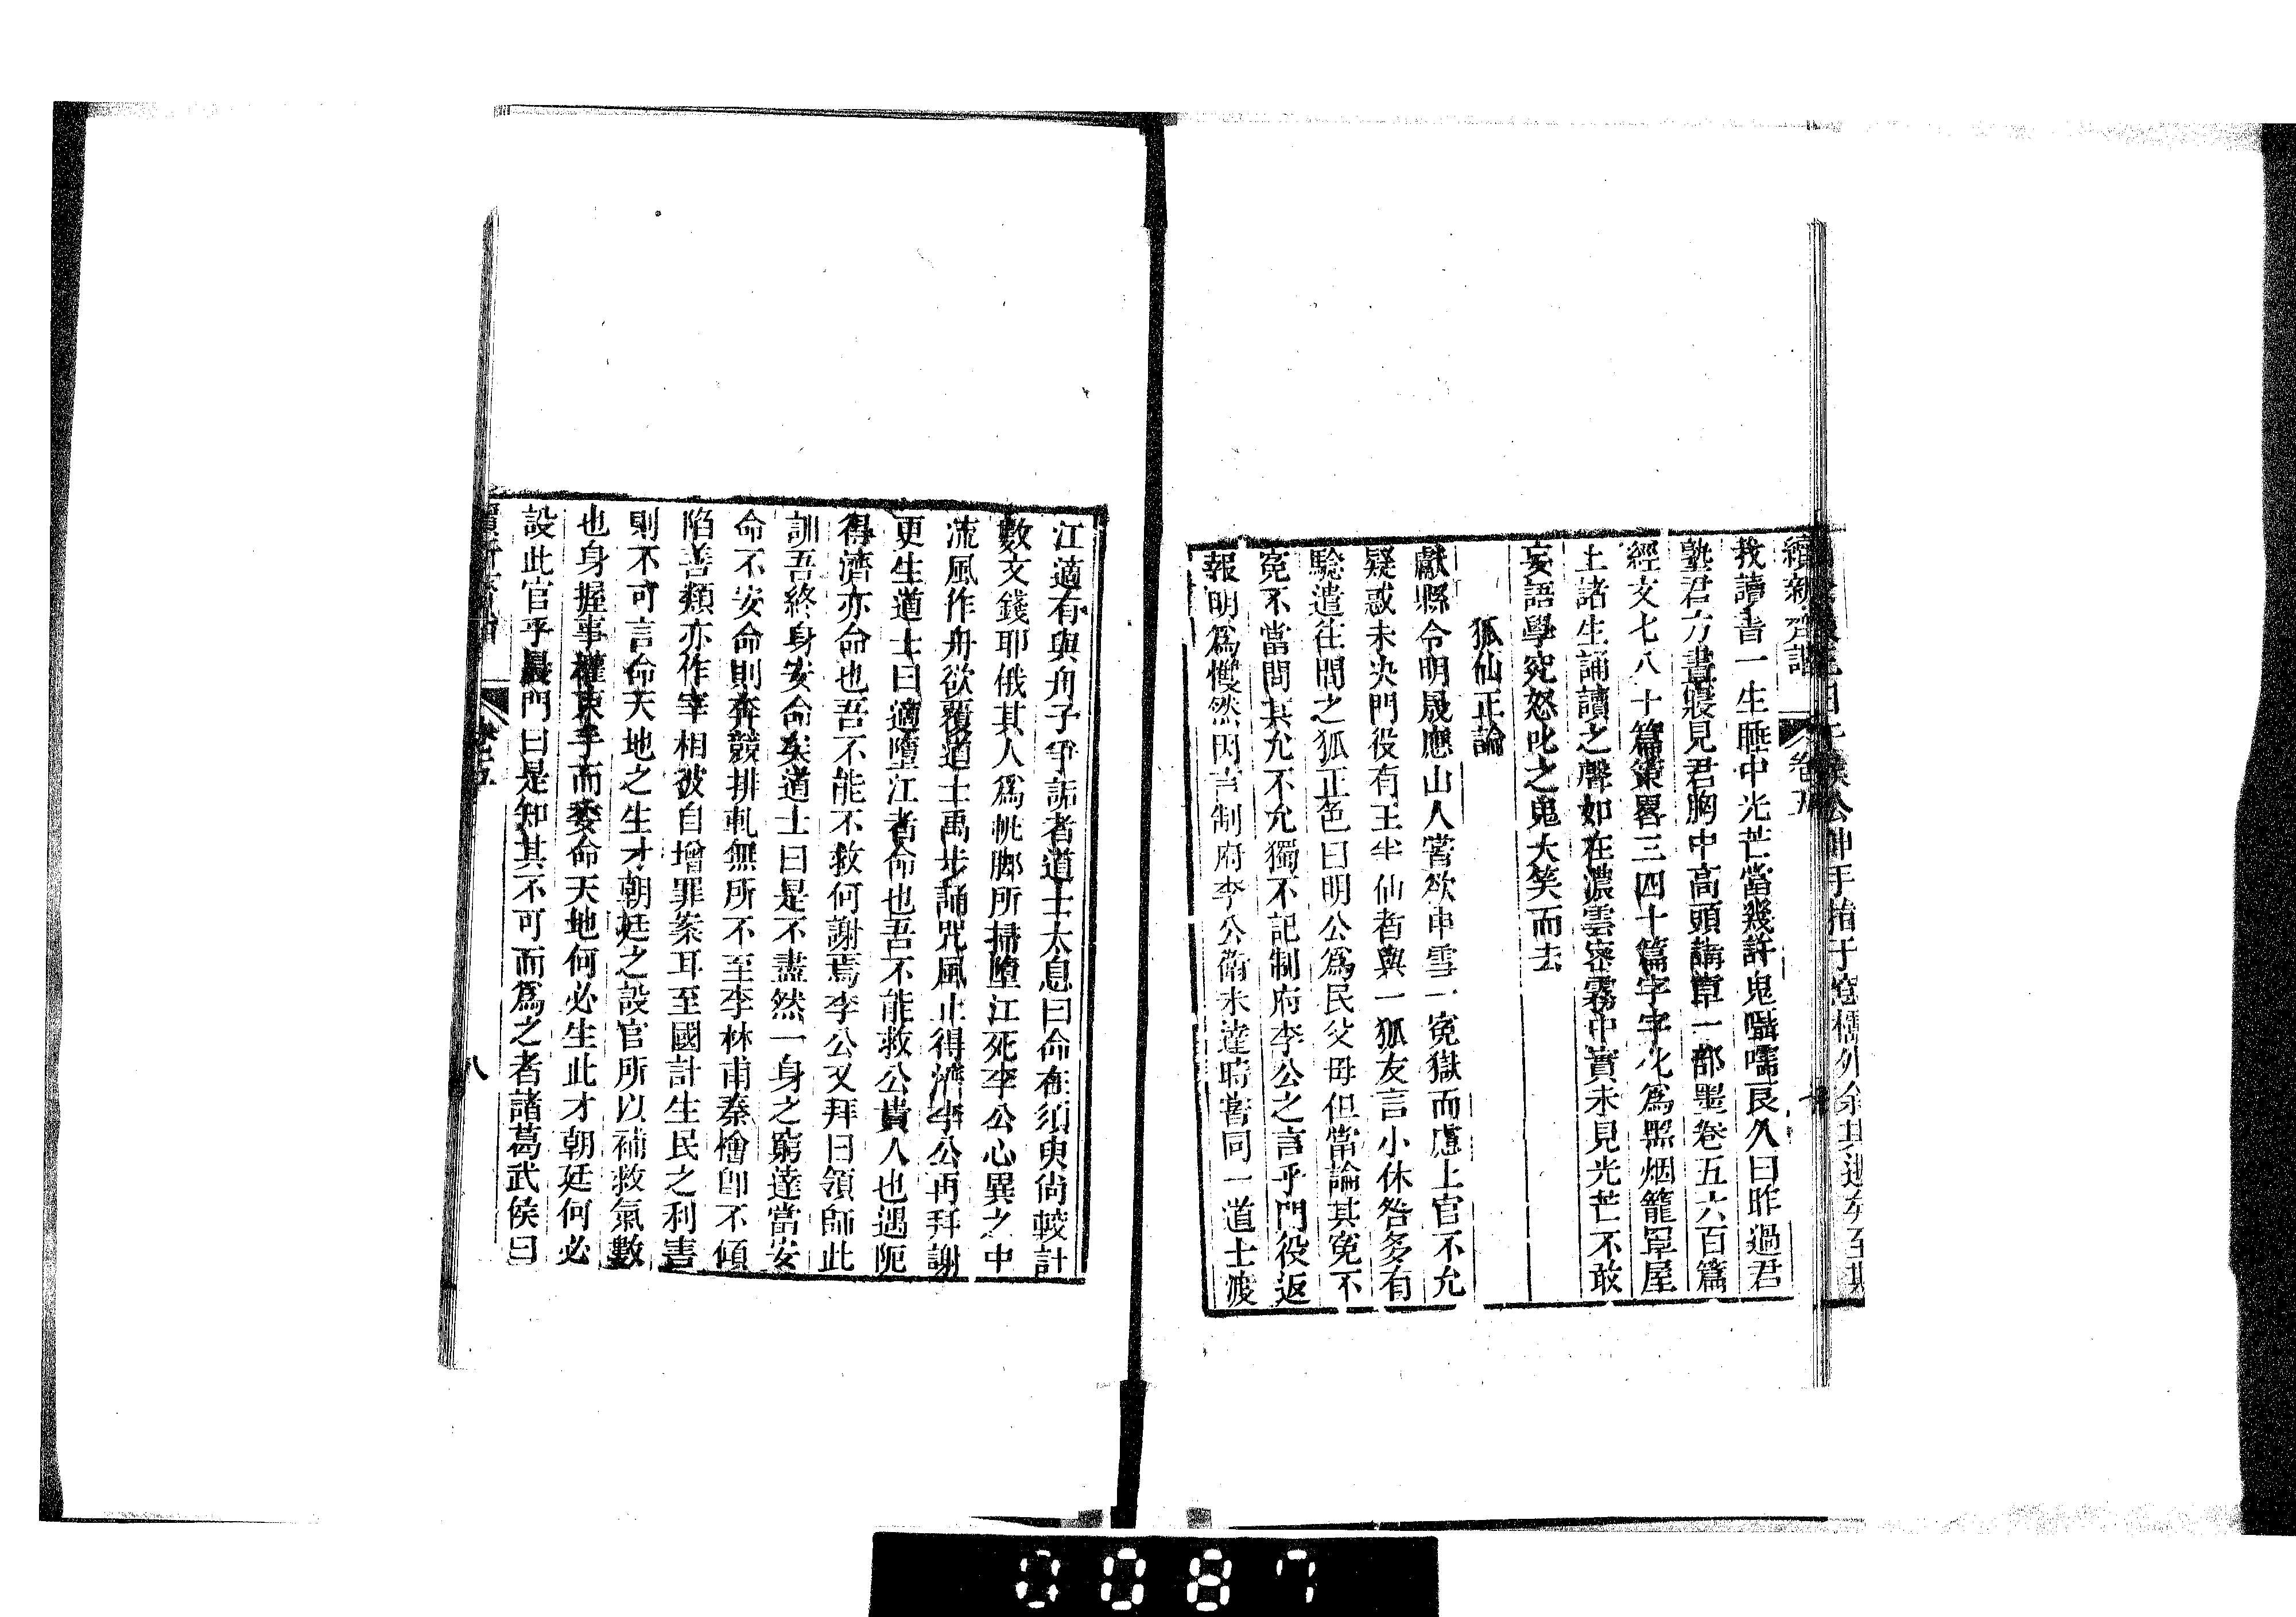 續新齊諧 卷五
我讀書一生睡中光芒當幾許鬼囁嚅良久曰昨過君
塾君方晝寢見君胸中高頭講章一部墨卷五六百篇
經文七八十篇策畧三四十篇字字化為黑烟籠罩屋
上諸生誦讀之聲如在濃雲密霧中實未見光芒不敢
妄語學究怒叱之鬼大笑而去
狐仙正論
獻縣令明晟應山人嘗欲申雪一寃獄而慮上官不允
疑惑未决門役有王半仙者與一狐友言小休咎多有
驗遣往問之狐正色曰明公爲民父母但當論其寃不
寃不當問其允不允獨不記制府李公之言乎門役返
報明爲懼然因言制府李公衛未達時嘗同一道士渡
江適有與舟子爭詬者道士太息曰命在須臾尙較計
數文錢耶俄其人爲帆脚所掃墮江死李公心異之中
流風作舟欲覆道士禹步誦咒風止得濟李公再拜謝
更生道士曰適墮江者命也吾不能救公貴人也遇阨
得濟亦命也吾不能不救何謝焉李公又拜曰領師此
訓吾終身安命矣道士曰是不盡然一身之窮達當安
命不安命則奔競排軋無所不至李林甫秦檜卽不傾
陷善類亦作宰相彼自增罪案耳至國計生民之利害
則不可言命天地之生才朝廷之設官所以補救氣數
也身握事權束手而委命天地何必生此才朝廷何必
設此官乎晨門曰是知其不可而爲之者諸葛武侯曰
卷五
八
0087